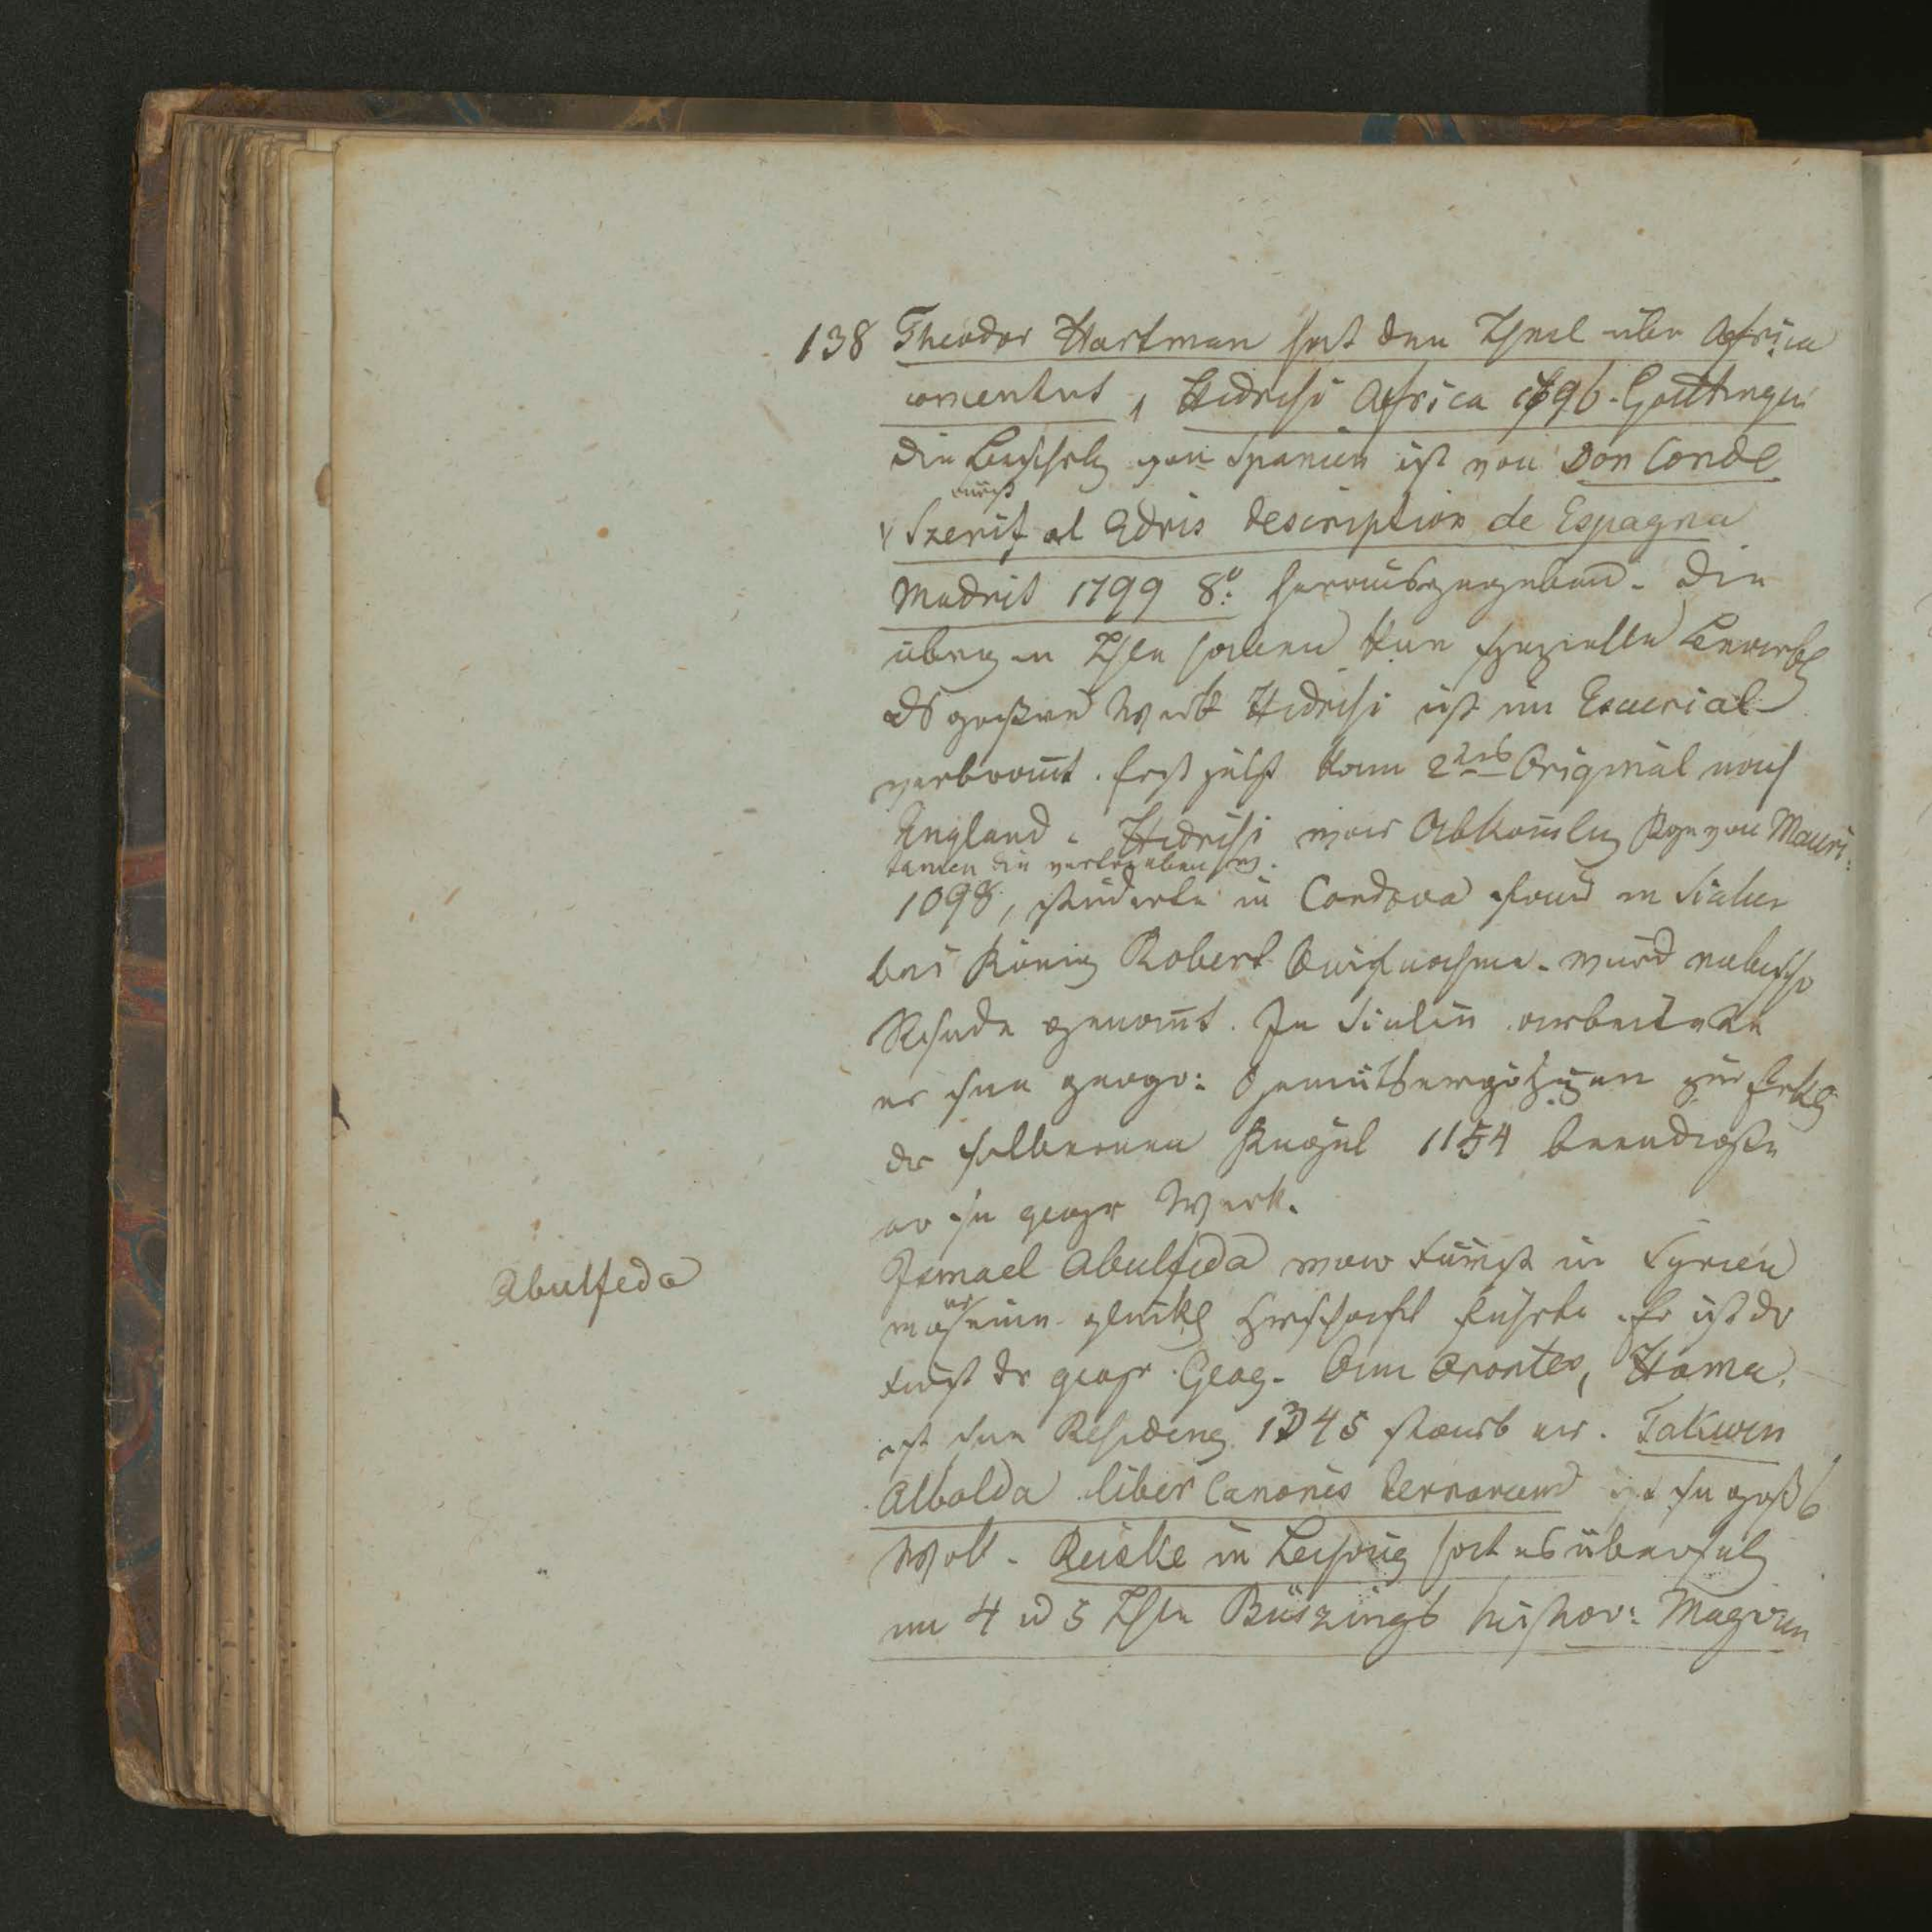 138 Theodor Hartman hat den Theil über Africa
comentirt, Hedrisi Africa 1796. Gottingen
die Beschrbg von Spanien ist von Don Conde
durch
Szerif al Edris description de Espagna
Madrit 1799 8º herausgegeben. Die
übrigen Thle haben keine spezielle Bearbtg
das größere Werk Hedrisi ist im Escurial
verbrannt. Erst jetzt kam 2tes Original nach
England. Hedrisi war Abkömlng von Mauri:
tanien die vertrieben
1098, studirte in Cordova fand in Sicilien
bei König Robert Aufnahme. wurd nubische
genannt. In Sicilien arbeitete
er seine geogr: Gemüthsergötzungen zur Erklg
der silbernen Kugel 1154 beendigte
er sn geogr Werk.
Abulfeda
Ismael Abulfeda war Fürst in Syrien
wo er eine glückl Herschaft führte. Er ist der
Fürst der Geog. Am Orontes, Hama,
ist seine Residenz. 1345 starb er. Takwin
Albolda liber Canonis terrarum ist sn großs
Werk. Reiske in Leipzig hat es übersetz
im 4 u 5 Thle Büszings histor: Magazin